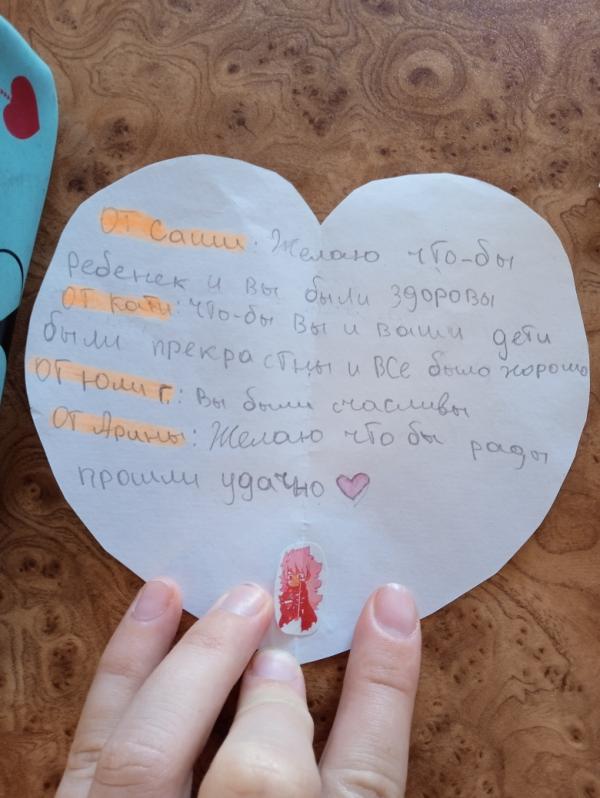 От Саши: Желаю что-бы
ребенек и вы были здоровы
От кати: что-бы вы и ваши дети
были прекрастны и все было хорошо
От Юли г.: вы были счасливы
От Арины: Желаю что бы рады
прошли удачно